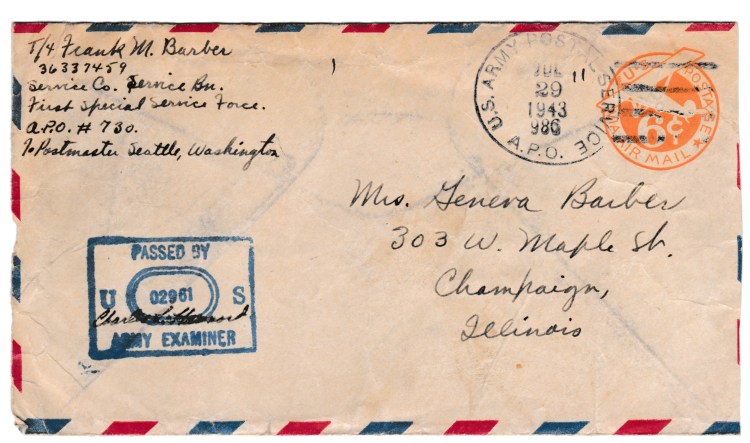 T/4 Frank M. Barber
36337459
Service Co. Service Bn.
First Special Service Force.
A.P.O. # 730.
℅ Postmaster Seattle, Washington
U.S. ARMY POSTAL SERVICE
JUL 11
29
1943
986
A.P.O.
U.S. POSTAGE
6¢
AIR MAIL
Mrs. Geneva Barber
303 W. Maple St.
Champaign,
Illinois
PASSED BY
U 02961 S
ARMY EXAMINER